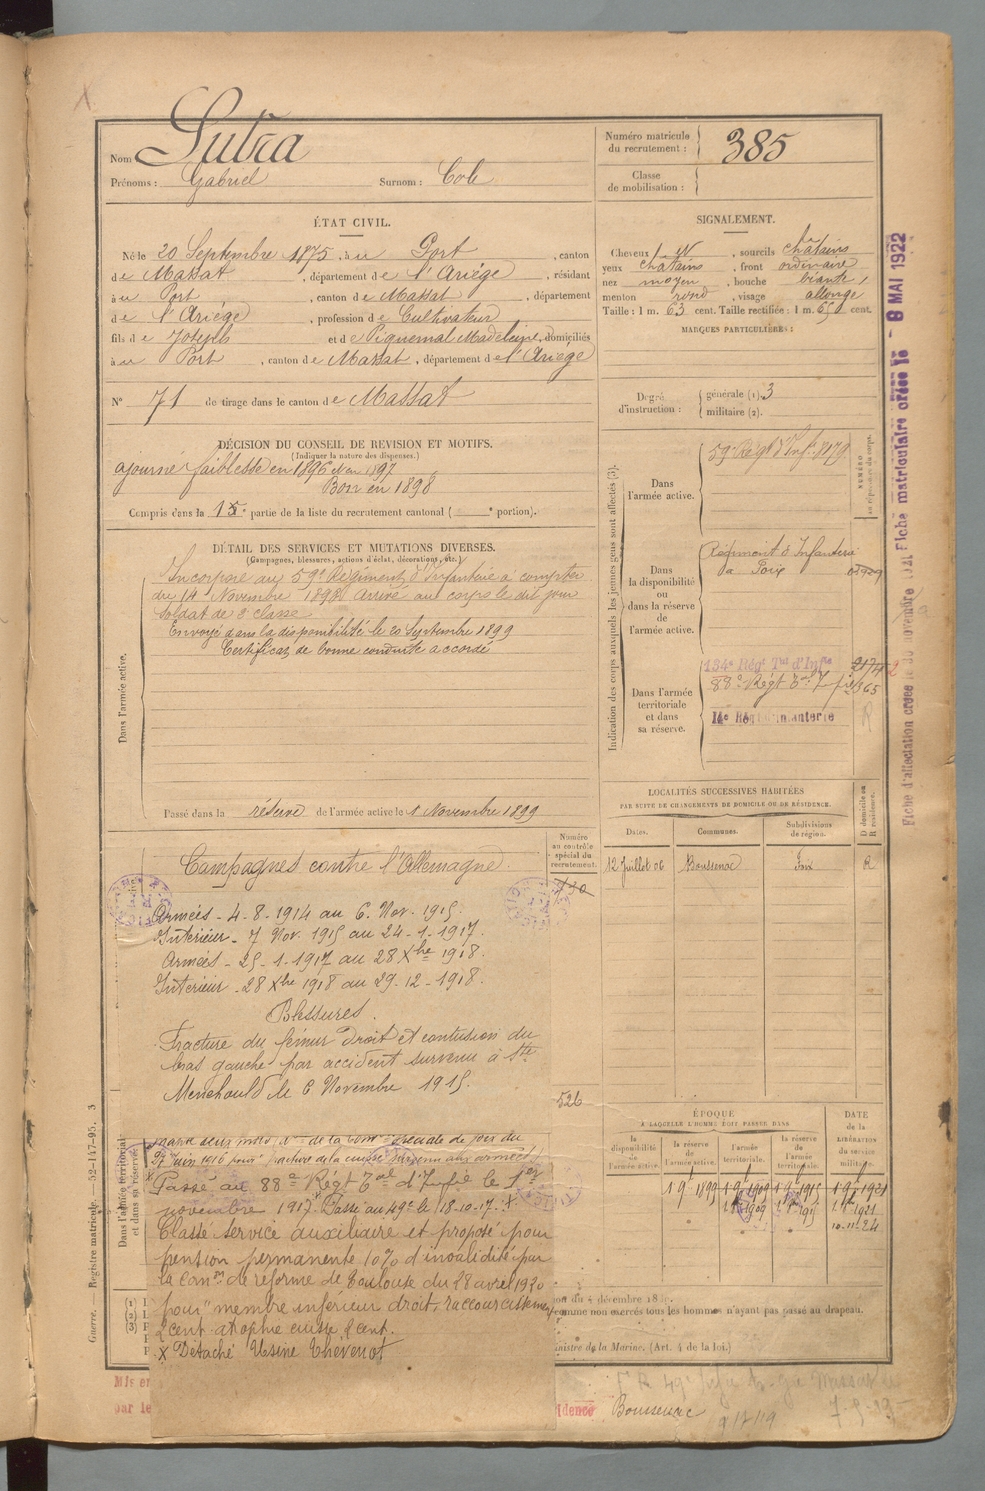 Nom Sutra
Prénoms : Gabriel Surnom : Cole
Numéro matricule du recrutement : 385
Classe de mobilisation :
ÉTAT CIVIL.
Né le 20 Septembre 1875, à u Port, canton
de Massat, département de l'Ariège, résidant
à u Port, canton de Massat, département
de l'Ariège, profession de Cultivateur
fils de Joseph et de Piquemal Madeleine, domiciliés
à u Port, canton de Massat, département de l'Ariège
N° 71 de tirage dans le canton de Massat
SIGNALEMENT.
Cheveux, sourcils châtains
yeux châtains, front ordinaire
nez moyen, bouche béante,
menton rond, visage allongé
Taille : 1 m. 63 cent. Taille rectifiée : 1 m. 650 cent.
MARQUES PARTICULIÈRES :
Degré d'instruction : générale (1). 3
militaire (2).
DÉCISION DU CONSEIL DE REVISION ET MOTIFS.
(Indiquer la nature des dispenses.)
ajourné faiblesse en 1896 et en 1897
Bon en 1898
Compris dans la 1e partie de la liste du recrutement cantonal ( e portion).
DÉTAIL DES SERVICES ET MUTATIONS DIVERSES.
(Campagnes, blessures, actions d'éclat, décorations, etc.)
Dans l'armée active.
Incorporé au 59e Régiment d'Infanterie à compter
du 14 Novembre 1898. Arrivé au corps le dit jour
soldat de 2e classe.
Envoyé dans la disponibilité le 20 Septembre 1899
Certificat de bonne conduite accordé
Passé dans la réserve de l'armée active le 1 Novembre 1899
Indication des corps auxquels les jeunes gens sont affectés (3).
NUMÉRO au répertoire du corps.
Dans l'armée active.
59e Régt d'Inf. 8179
Dans la disponibilité ou dans la réserve de l'armée active.
Régiment d'Infanterie
de Foix
Dans l'armée territoriale et dans sa réserve.
134e Régt Tal d'Infie
88e Régt Tal
14e Régt Infanterie
R
LOCALITÉS SUCCESSIVES HABITÉES
PAR SUITE DE CHANGEMENTS DE DOMICILE OU DE RÉSIDENCE.
Dates. Communes. Subdivisions de région. D domicile ou R résidence.
12 Juillet 06 Boussenac Foix R
Numéro au contrôle spécial du recrutement.
526
Campagnes contre l'Allemagne.
Armées - 4-8-1914 au 6. Nov. 1915.
Intérieur - 7 Nov. 1915 au 24-1-1917.
Armées - 25-1-1917 au 28 Xbre 1918.
Intérieur - 28 Xbre 1918 au 29-12-1918.
Blessures.
Fracture du fémur droit et contusion du
bras gauche par accident survenu à Ste
Menehould le 6 Novembre 1915.
Dans l'armée territoriale et dans sa réserve.
de la Comon spéciale de Foix du
27 Juin 1916 pour fracture de la cuisse survenu aux armées
Passé au 88e Régt Tal d'Infie le 1er
novembre 1917. Passé au 49e le 18-10-17. X
Classé service auxiliaire et proposé pour
pension permanente 10% d'invalidité par
la Comon de réforme de Toulouse du 28 avril 1920
pour "membre inférieur droit, raccourcissement
2 cent. atrophie cuisse 2 cent.
X Détaché Usine Thévenot
ÉPOQUE
À LAQUELLE L'HOMME DOIT PASSER DANS
la disponibilité de l'armée active. la réserve de l'armée active. l'armée territoriale. la réserve de l'armée territoriale.
DATE de la LIBÉRATION du service militaire.
1 9e 1899 1 9e 1909 1 9e 1915 1 9e 1921
10-11-24
comme non exercés tous les hommes n'ayant pas passé au drapeau.
inistre de la Marine. (Art. 4 de la loi.)
Mis en
par le
idence Boussenac
Guerre. — Registre matricule. — 52-147-95. 3
Fiche matriculaire créée le - 8 MAI 1922